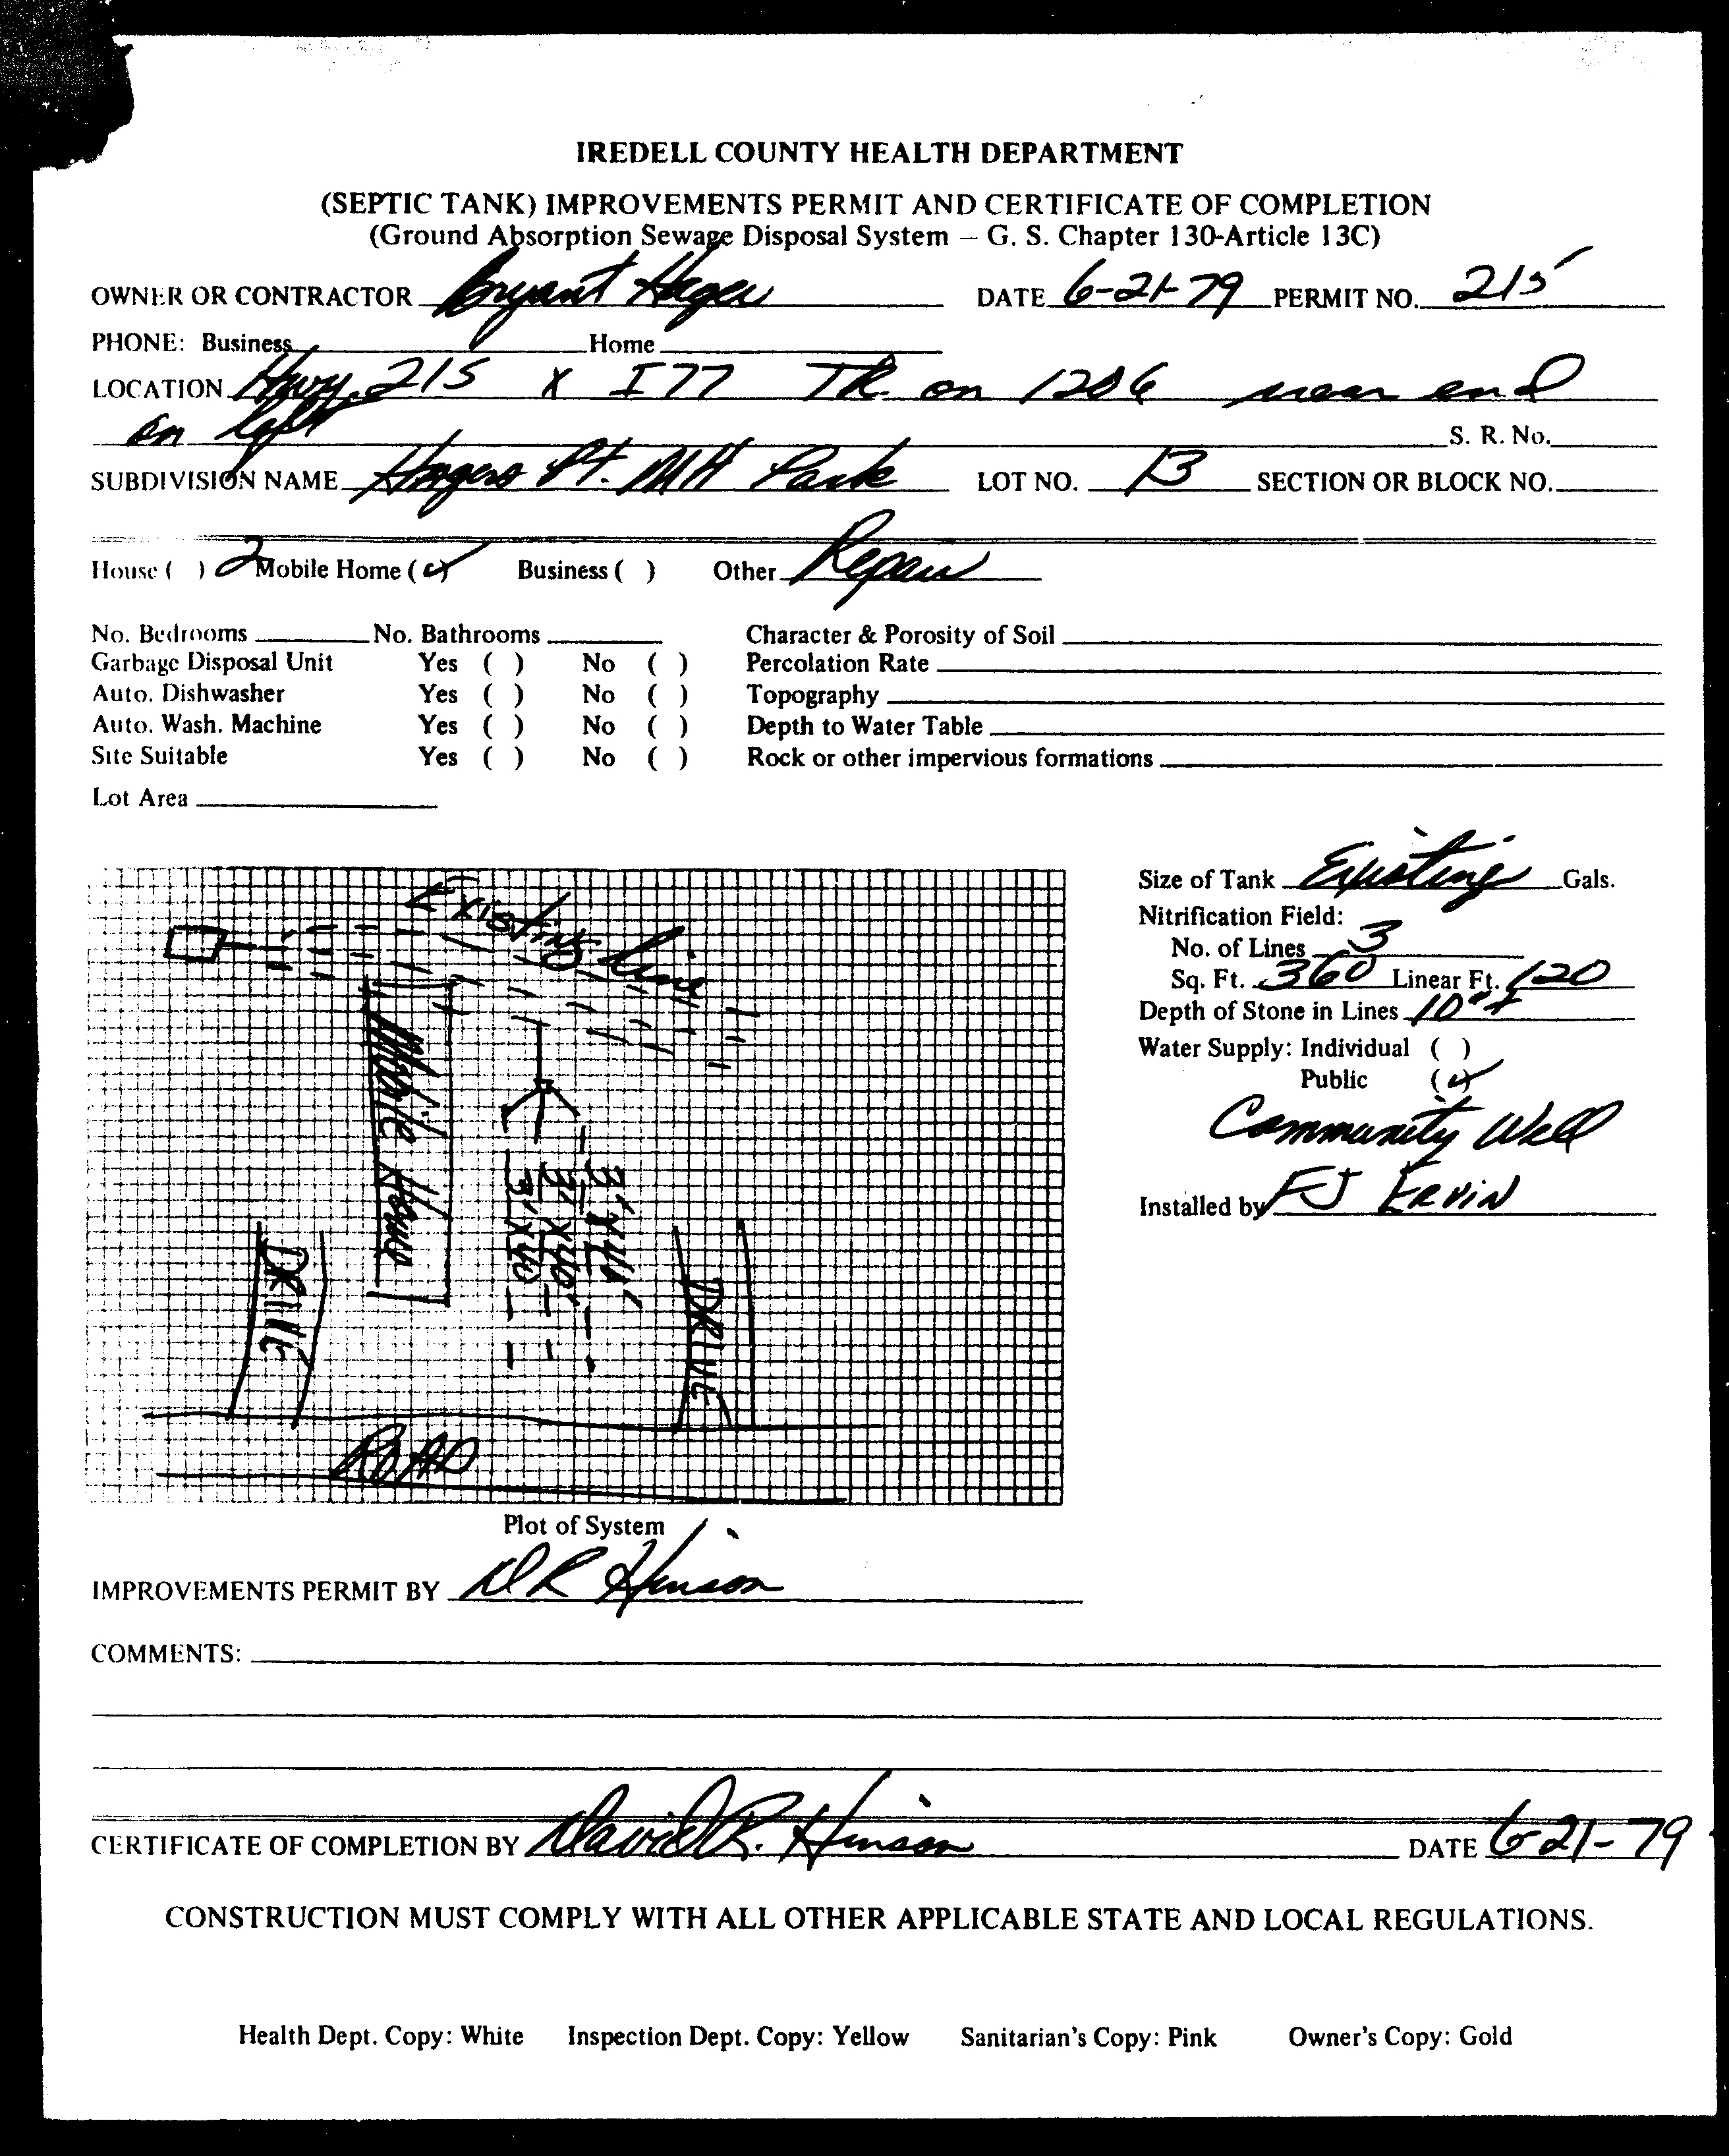 IREDELL COUNTY HEALTH DEPARTMENT
(SEPTIC TANK) IMPROVEMENTS PERMIT AND CERTIFICATE OF COMPLETION
(Ground Absorption Sewage Disposal System – G. S. Chapter 130-Article 13C)
OWNER OR CONTRACTOR Bryant Hager DATE 6-21-79 PERMIT NO. 215
PHONE: Business Home
LOCATION Hwy. 21S X I77 TR on 1206 near end
on left S. R. No.
SUBDIVISION NAME Hagers Pt. MH Park LOT NO. 13 SECTION OR BLOCK NO.
House ( ) 2 Mobile Home (✓) Business ( ) Other Repair
No. Bedrooms No. Bathrooms Character & Porosity of Soil
Garbage Disposal Unit Yes ( ) No ( ) Percolation Rate
Auto. Dishwasher Yes ( ) No ( ) Topography
Auto. Wash. Machine Yes ( ) No ( ) Depth to Water Table
Site Suitable Yes ( ) No ( ) Rock or other impervious formations
Lot Area
Size of Tank Existing Gals.
Nitrification Field:
No. of Lines 3
Sq. Ft. 360 Linear Ft. 120
Depth of Stone in Lines 10"
Water Supply: Individual ( )
Public (✓)
Community Well
Installed by FJ ERVIN
Existing line
Mobile Home
3' X 40'
3' X 40'
3' X 40'
DRIVE
DRIVE
ROAD
Plot of System
IMPROVEMENTS PERMIT BY DR Hinson
COMMENTS:
CERTIFICATE OF COMPLETION BY David R. Hinson DATE 6-21-79
CONSTRUCTION MUST COMPLY WITH ALL OTHER APPLICABLE STATE AND LOCAL REGULATIONS.
Health Dept. Copy: White Inspection Dept. Copy: Yellow Sanitarian's Copy: Pink Owner's Copy: Gold